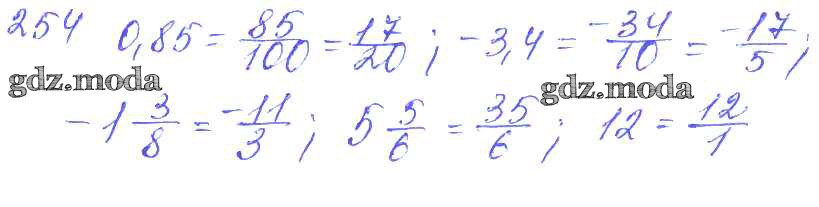 254 0,85 = 85/100 = 17/20; -3,4 = -34/10 = -17/5;
gdz.moda gdz.moda
-1 3/8 = -11/3; 5 5/6 = 35/6; 12 = 12/1